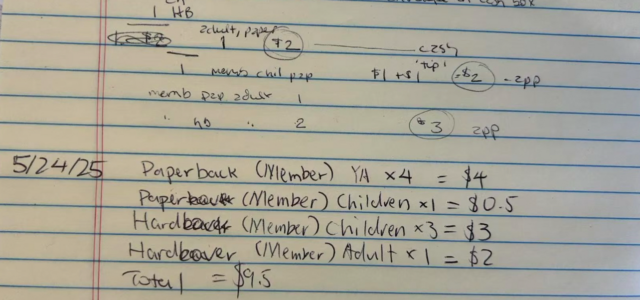 1 HB
adult, paper
1 $2 cash
1 memb chil pap $1 + $1 'tip' $2 - app
memb pap adult 1
" hb " 2 $3 app
5/24/25 Paperback (Member) YA ×4 = $4
Paperback (Member) Children ×1 = $0.5
Hardcover (Member) Children ×3 = $3
Hardcover (Member) Adult ×1 = $2
Total = $9.5